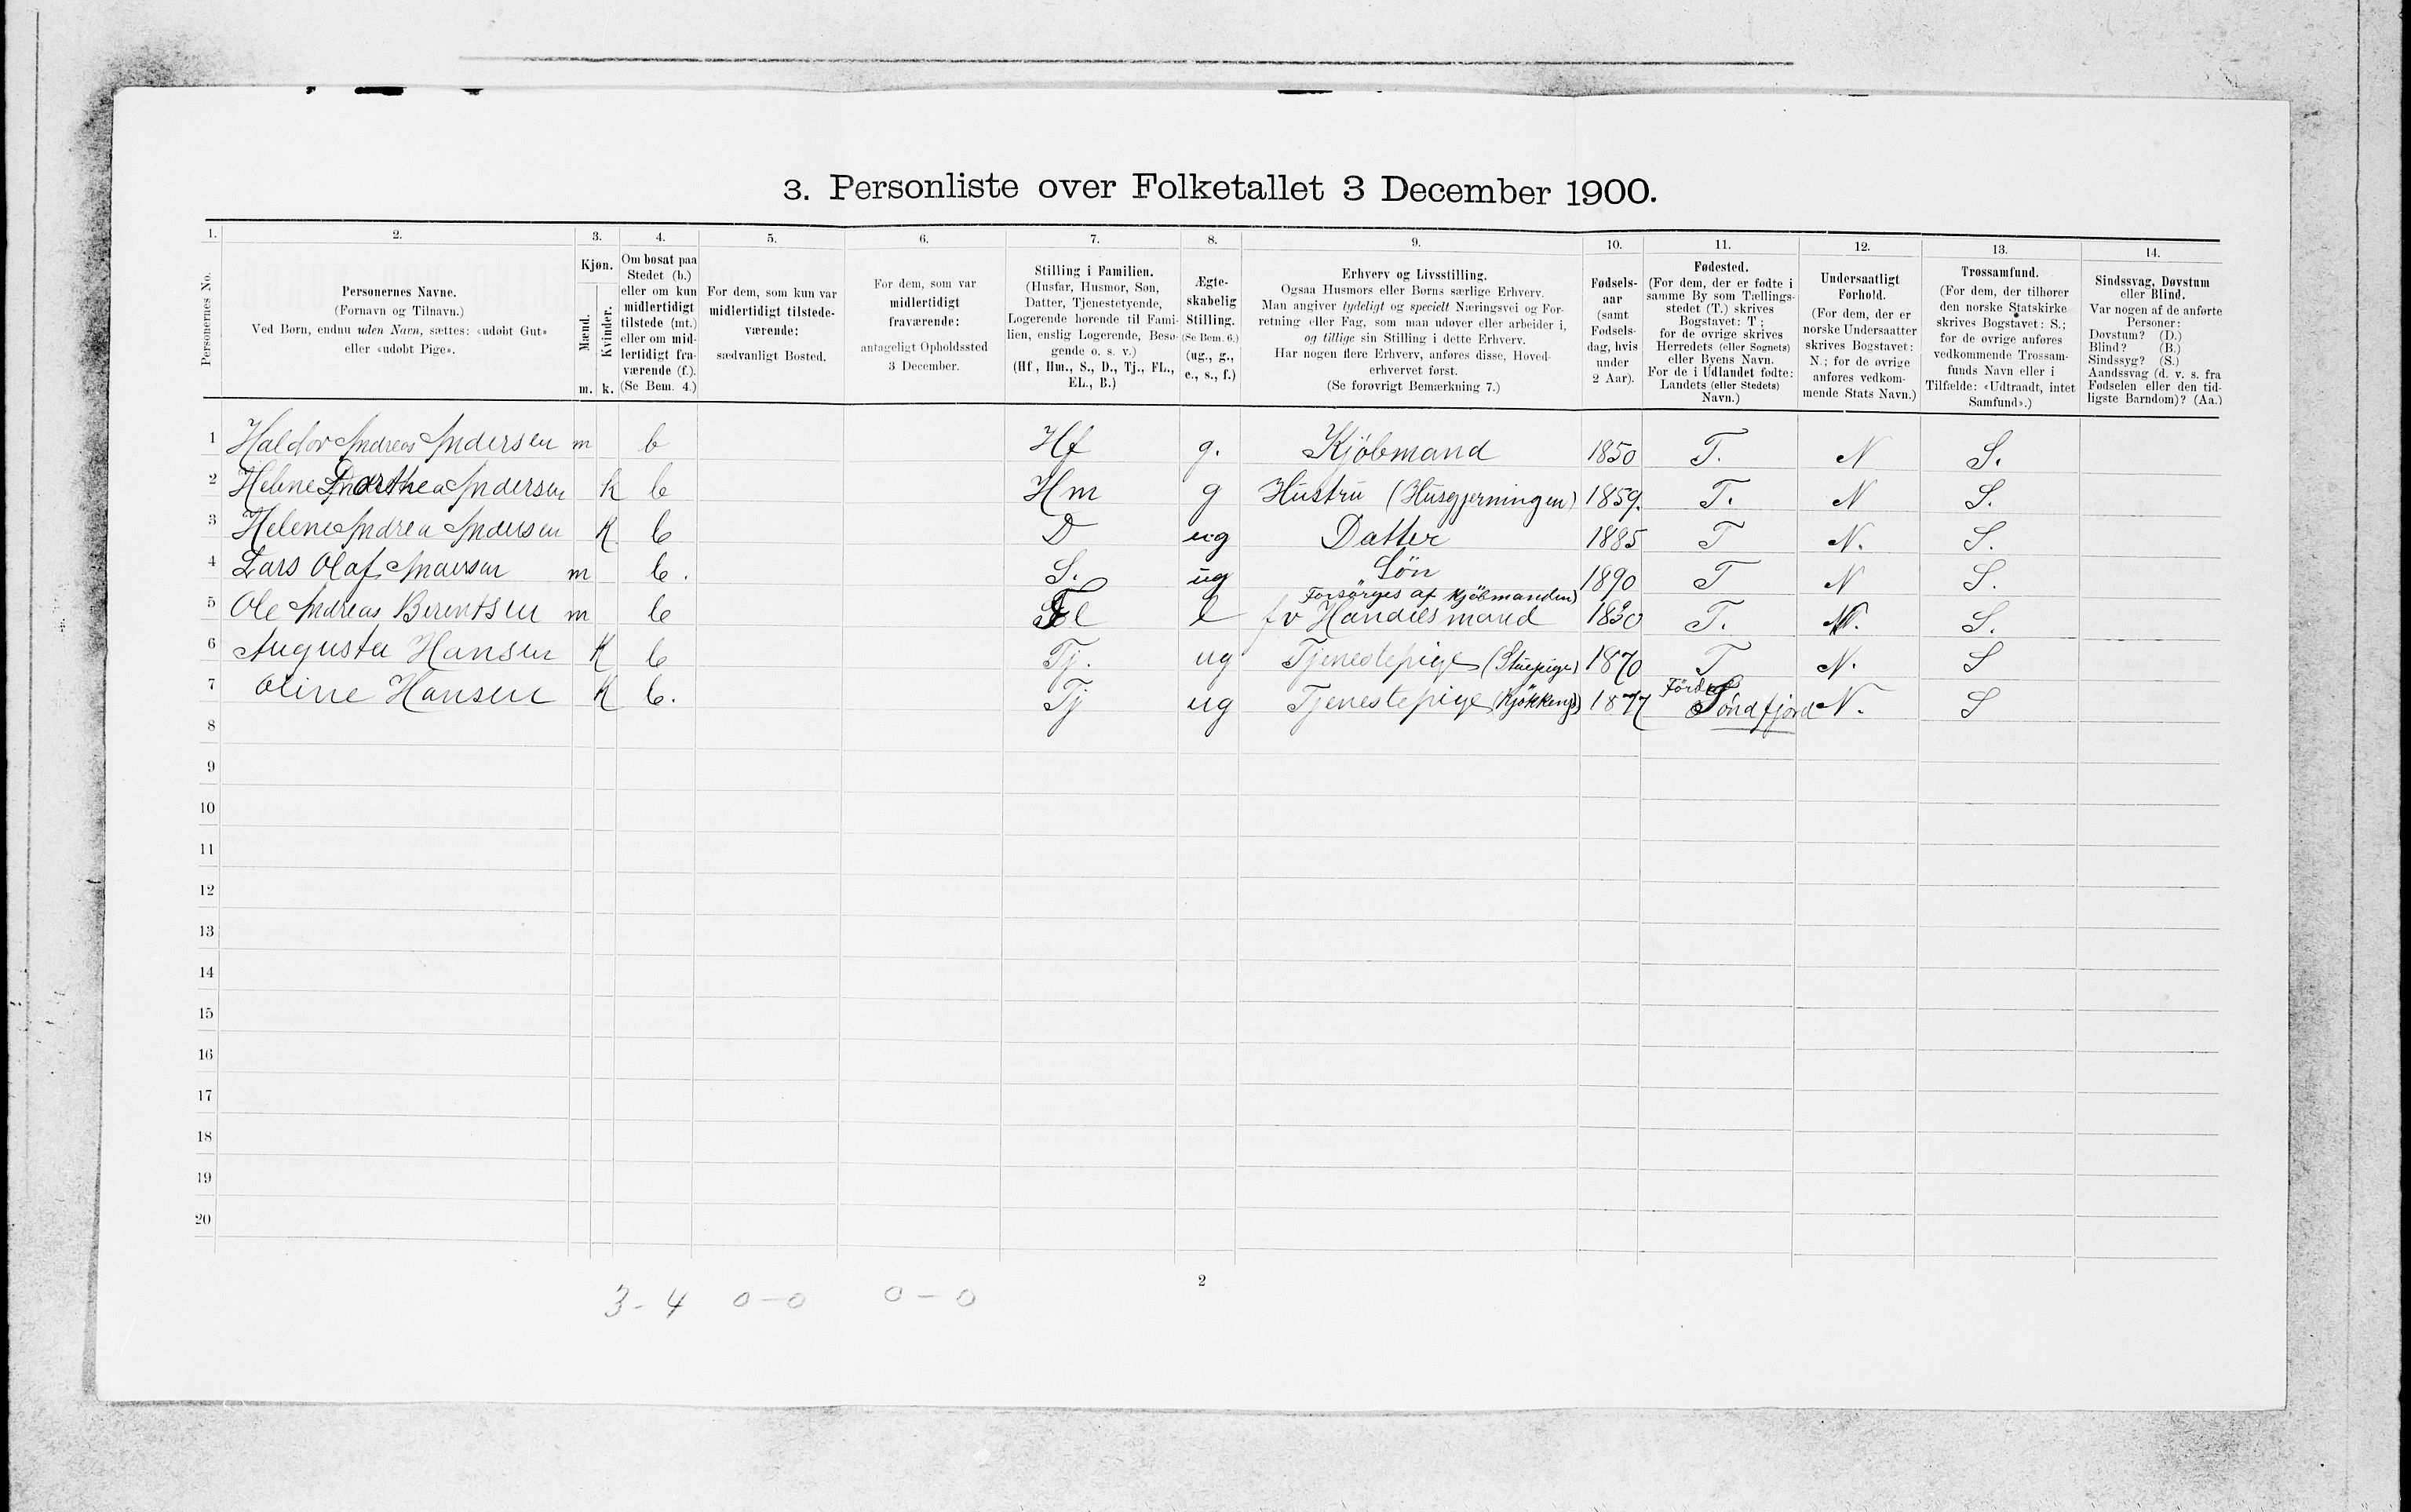 3. Personliste over Folketallet 3 December 1900.
1. 2. 3. 4. 5. 6. 7. 8. 9. 10. 11. 12. 13. 14.
Personernes No.
Personernes Navne.
(Fornavn og Tilnavn.)
Ved Børn, endnu uden Navn, sættes: «udøbt Gut»
eller «udøbt Pige».
Kjøn.
Mænd.
Kvinder.
m. k.
Om bosat paa
Stedet (b.)
eller om kun
midlertidigt
tilstede (mt.)
eller om mid-
lertidigt fra-
værende (f.).
(Se Bem. 4.)
For dem, som kun var
midlertidigt tilstede-
værende:
sædvanligt Bosted.
For dem, som var
midlertidigt
fraværende:
antageligt Opholdssted
3 December.
Stilling i Familien.
(Husfar, Husmor, Søn,
Datter, Tjenestetyende,
Logerende hørende til Fami-
lien, enslig Logerende, Besø-
gende o. s. v.)
(Hf., Hm., S., D., Tj., FL.,
EL., B.)
Ægte-
skabelig
Stilling.
(Se Bem. 6.)
(ug., g.,
e., s., f.)
Erhverv og Livsstilling.
Ogsaa Husmors eller Børns særlige Erhverv.
Man angiver tydeligt og specielt Næringsvei og For-
retning eller Fag, som man udøver eller arbeider i,
og tillige sin Stilling i dette Erhverv.
Har nogen flere Erhverv, anføres disse, Hoved-
erhvervet først.
(Se forøvrigt Bemærkning 7.)
Fødsels-
aar
(samt
Fødsels-
dag, hvis
under
2 Aar).
Fødested.
(For dem, der er fødte i
samme By som Tællings-
stedet (T.) skrives
Bogstavet: T;
for de øvrige skrives
Herredets (eller Sognets)
eller Byens Navn.
For de i Udlandet fødte:
Landets (eller Stedets)
Navn.)
Undersaatligt
Forhold.
(For dem, der er
norske Undersaatter
skrives Bogstavet:
N.; for de øvrige
anføres vedkom-
mende Stats Navn.)
Trossamfund.
(For dem, der tilhører
den norske Statskirke
skrives Bogstavet: S.;
for de øvrige anføres
vedkommende Trossam-
funds Navn eller i
Tilfælde: «Udtraadt, intet
Samfund».)
Sindssvag, Døvstum
eller Blind.
Var nogen af de anførte
Personer:
Døvstum? (D.)
Blind? (B.)
Sindssyg? (S.)
Aandssvag (d. v. s. fra
Fødselen eller den tid-
ligste Barndom)? (Aa.)
1 Haldor Andreas Andersen m b Hf g. Kjöbmand 1850 T. N S.
2 Helene Dorthea Andersen k b Hm g Hustru (Husgjerningen) 1859. T. N S.
3 Helene Andrea Andersen K b D ug Datter 1885 T N. S.
4 Lars Olaf Andersen m b. S. ug Sön 1890 T N S.
Forsörges af Kjöbmanden)
5 Ole Andreas Berentsen m b Fl e fv Handelsmand 1830 T. N. S.
6 Augusta Hansen K b Tj. ug Tjenestepige (Stuepige) 1870 T N. S
Förde
7 Oline Hansen K b. Tj ug Tjenestepige (Kjökkenp) 1877 Söndfjord N. S
8
9
10
11
12
13
14
15
16
17
18
19
20
2
3-4 0-0 0-0